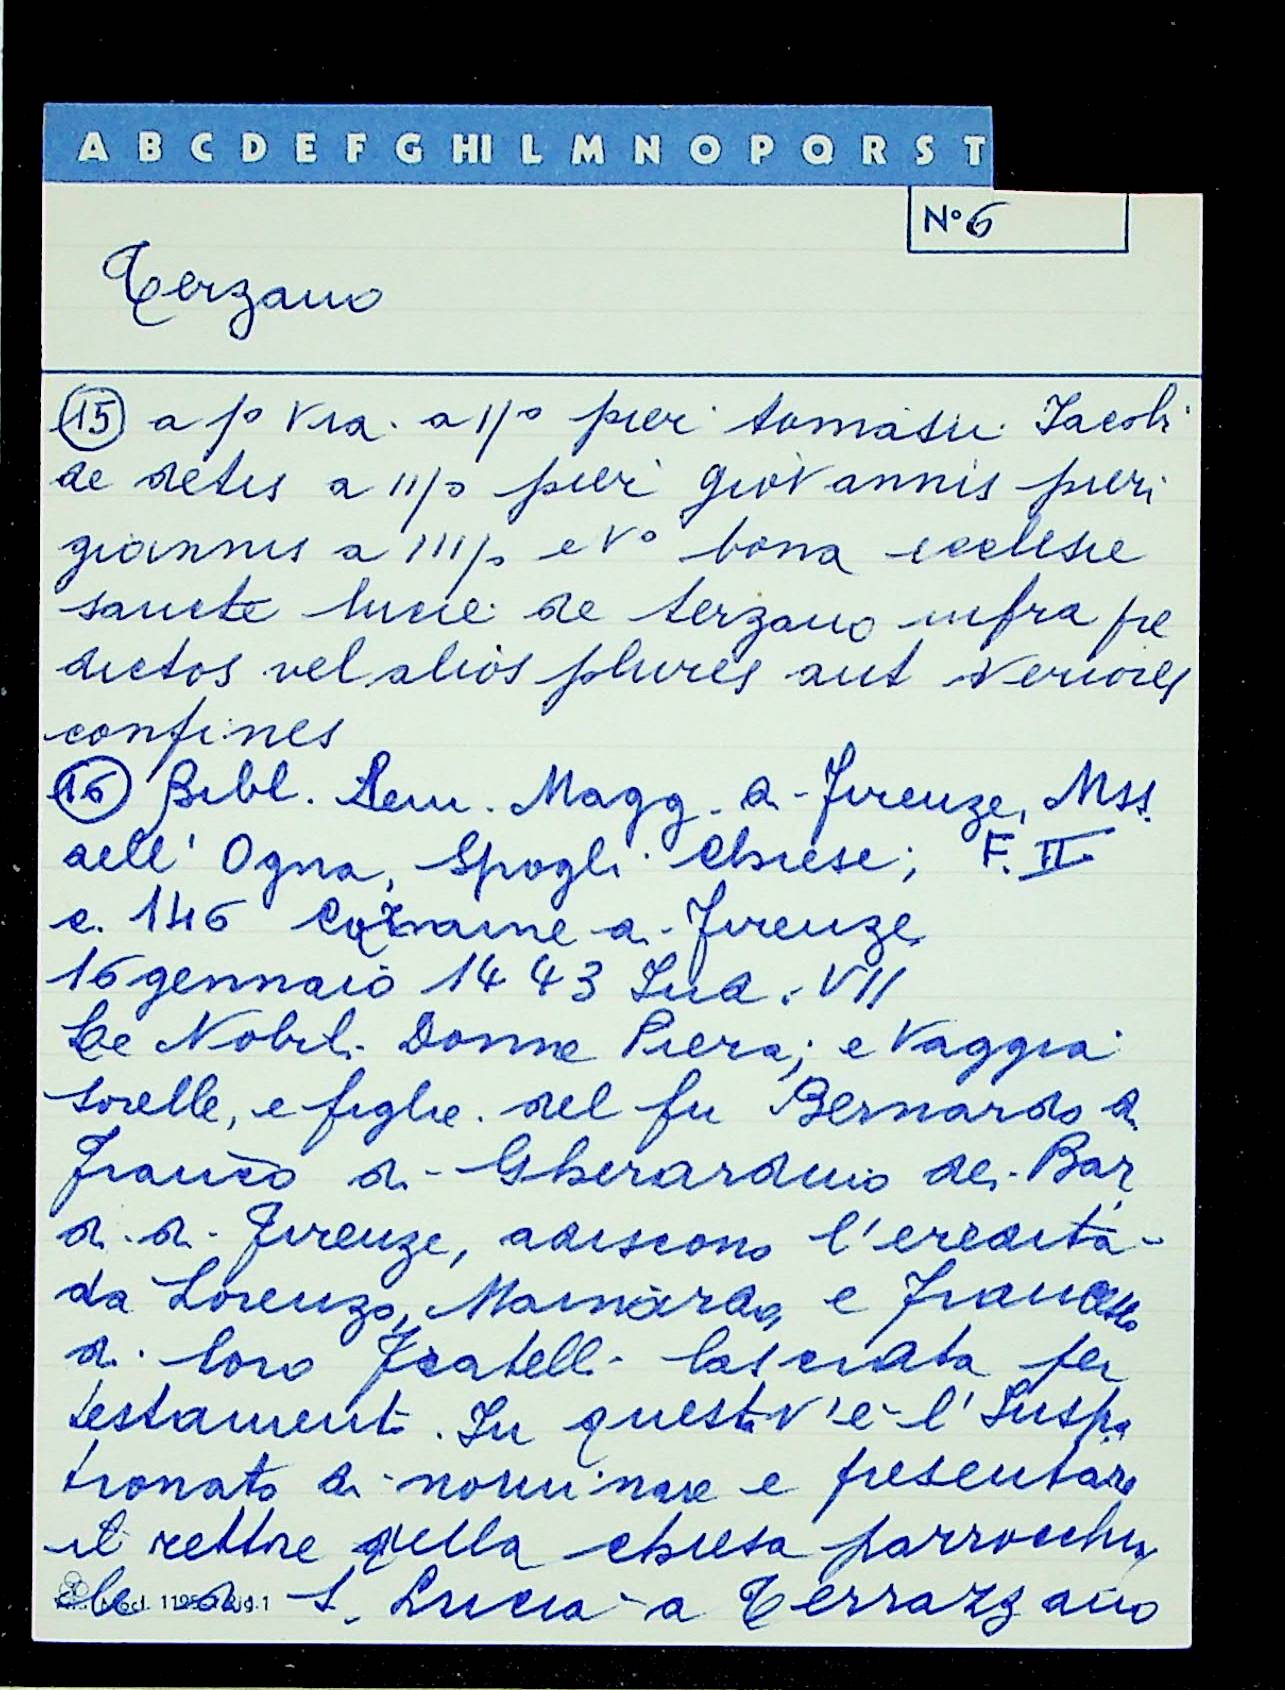 A B C D E F G HI L M N O P Q R S T
N° 6
Terzano
(15) a p° via. a II° pieri tomasii Jacobi
de detis a III° pieri giovannis pieri
giannis a IIII° e V° bona ecclesie
sancte lucie de terzano infra pre
dictos vel alios plures aut veriores
confines
(16) Bibl. Sem. Magg. di Firenze, Mss.
dell' Ogna, Spogli Chiese; F. II
c. 146 Comune di Firenze
16 gennaio 1443 Ind. VII
Le Nobili Donne Piera; e Vaggia
sorelle, e figlie del fu Bernardo di
Franco di Gherarduio dei Bar
di di Firenze, adiscono l'eredità
da Lorenzo, Mainardo, e Francesco
di loro Fratelli lasciata per
testamento. In questa v'è l'Juspa
tronato di nominare e presentare
il rettore della chiesa parrocchia
le di S. Lucia a Terrazzano
Mod. 1195